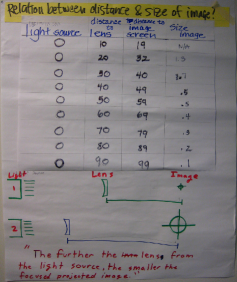 Relation between distance & size of image!
light source distance to lens distance to image screen Size image
10 19 No
20 32
30 40
40 49 .5
50 59 .5
60 69 .4
70 79 .3
80 89 .2
90 99 .1
Light Lens Image
1
2
"The further the lens from
the light source, the smaller the
focused projected image"